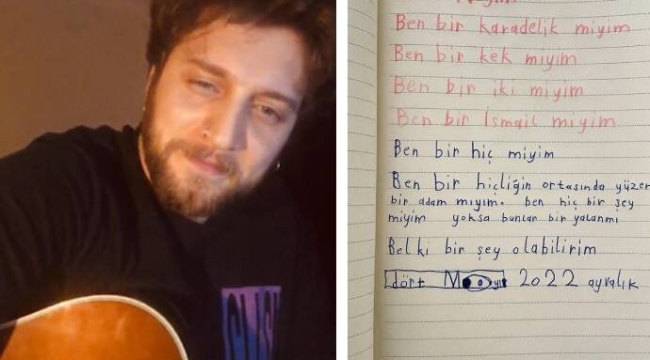 Ben bir karadelik miyim
Ben bir kek miyim
Ben bir iki miyim
Ben bir İsmail miyim
Ben bir hiç miyim
Ben bir hiçliğin ortasında yüzen
bir adam mıyım. ben hiç bir şey
miyim yoksa bunlar bir yalanmı
Belki bir şey olabilirim
dört 2022 ayralık